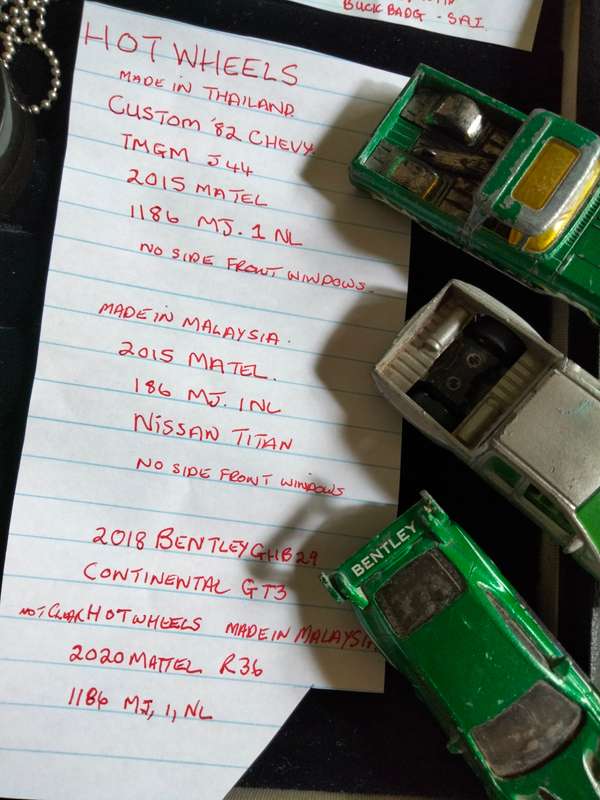 BUCK BADG - SAI.
HOT WHEELS
MADE IN THAILAND.
CUSTOM '82 CHEVY.
TMGM J44
2015 MATEL
1186 MJ. 1 NL
NO SIDE FRONT WINDOWS.
MADE IN MALAYSIA.
2015 MATEL.
186 MJ. 1NL
NISSAN TITAN
NO SIDE FRONT WINDOWS
2018 BENTLEY GHB29
CONTINENTAL GT3
NOT CLEAR HOT WHEELS MADE IN MALAYSIA
2020 MATTEL R36
1186 MJ, 1, NL
BENTLEY